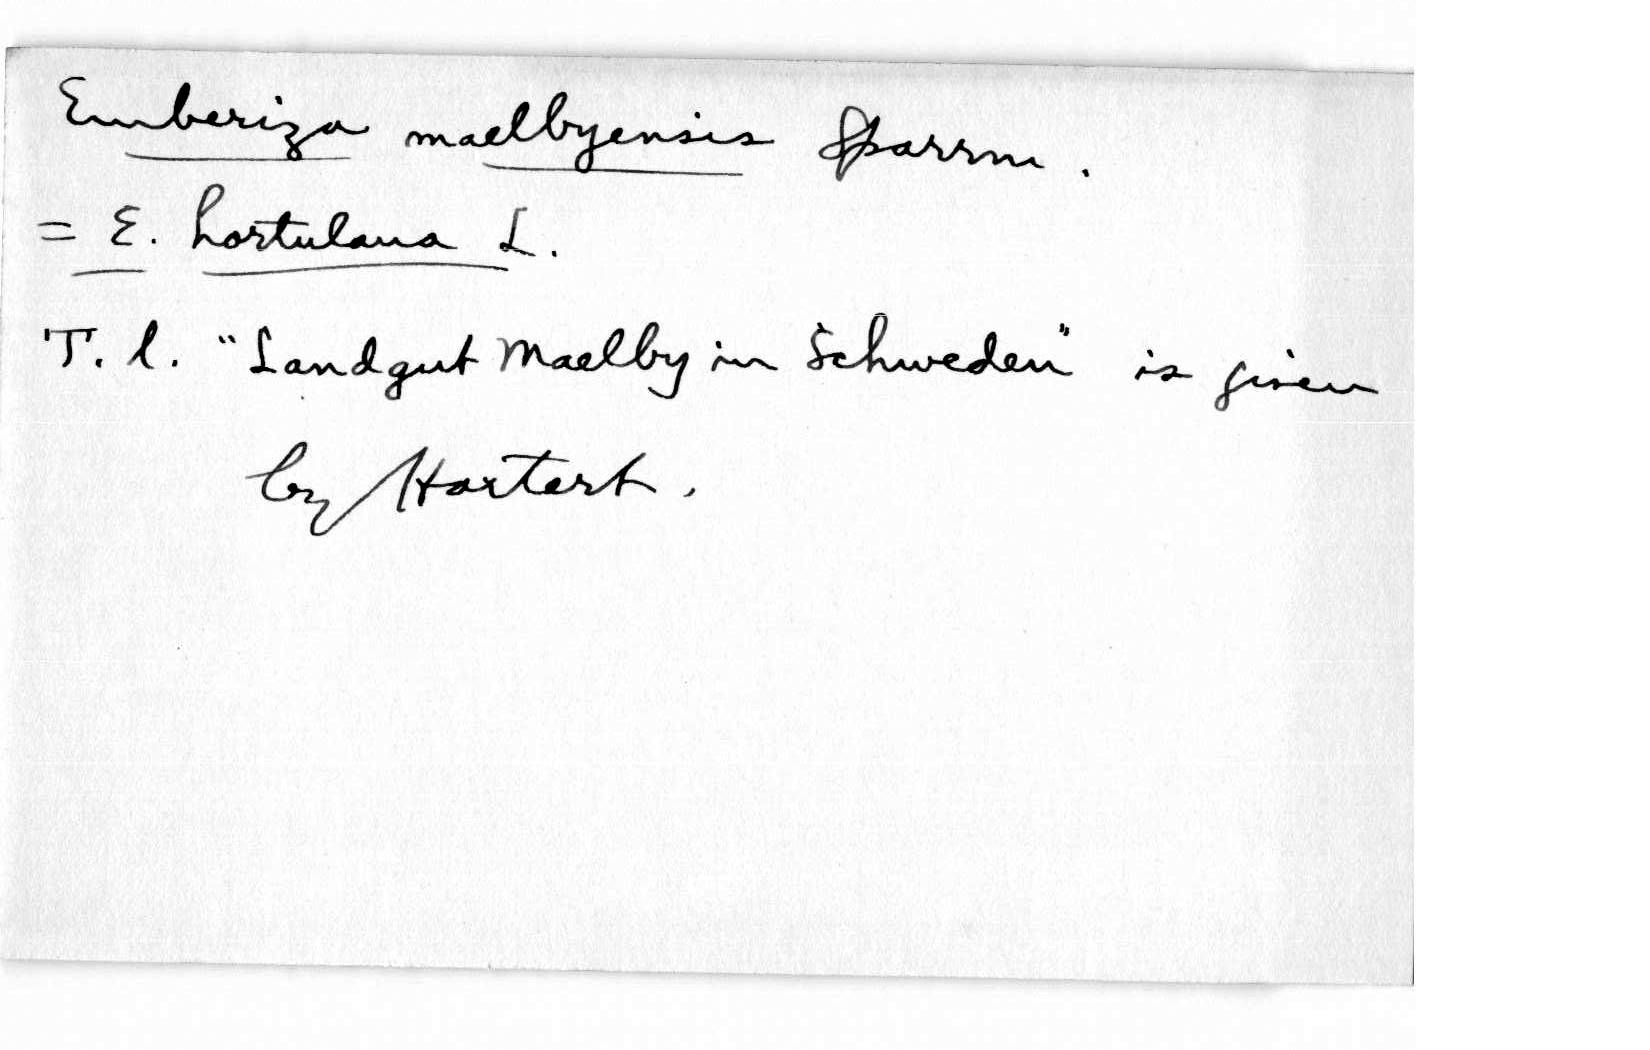 Emberiza maelbyensis Sparrm.
= E. hortulana L.
T. l. "Landgut Maelby in Schweden" is given
by Hartert.